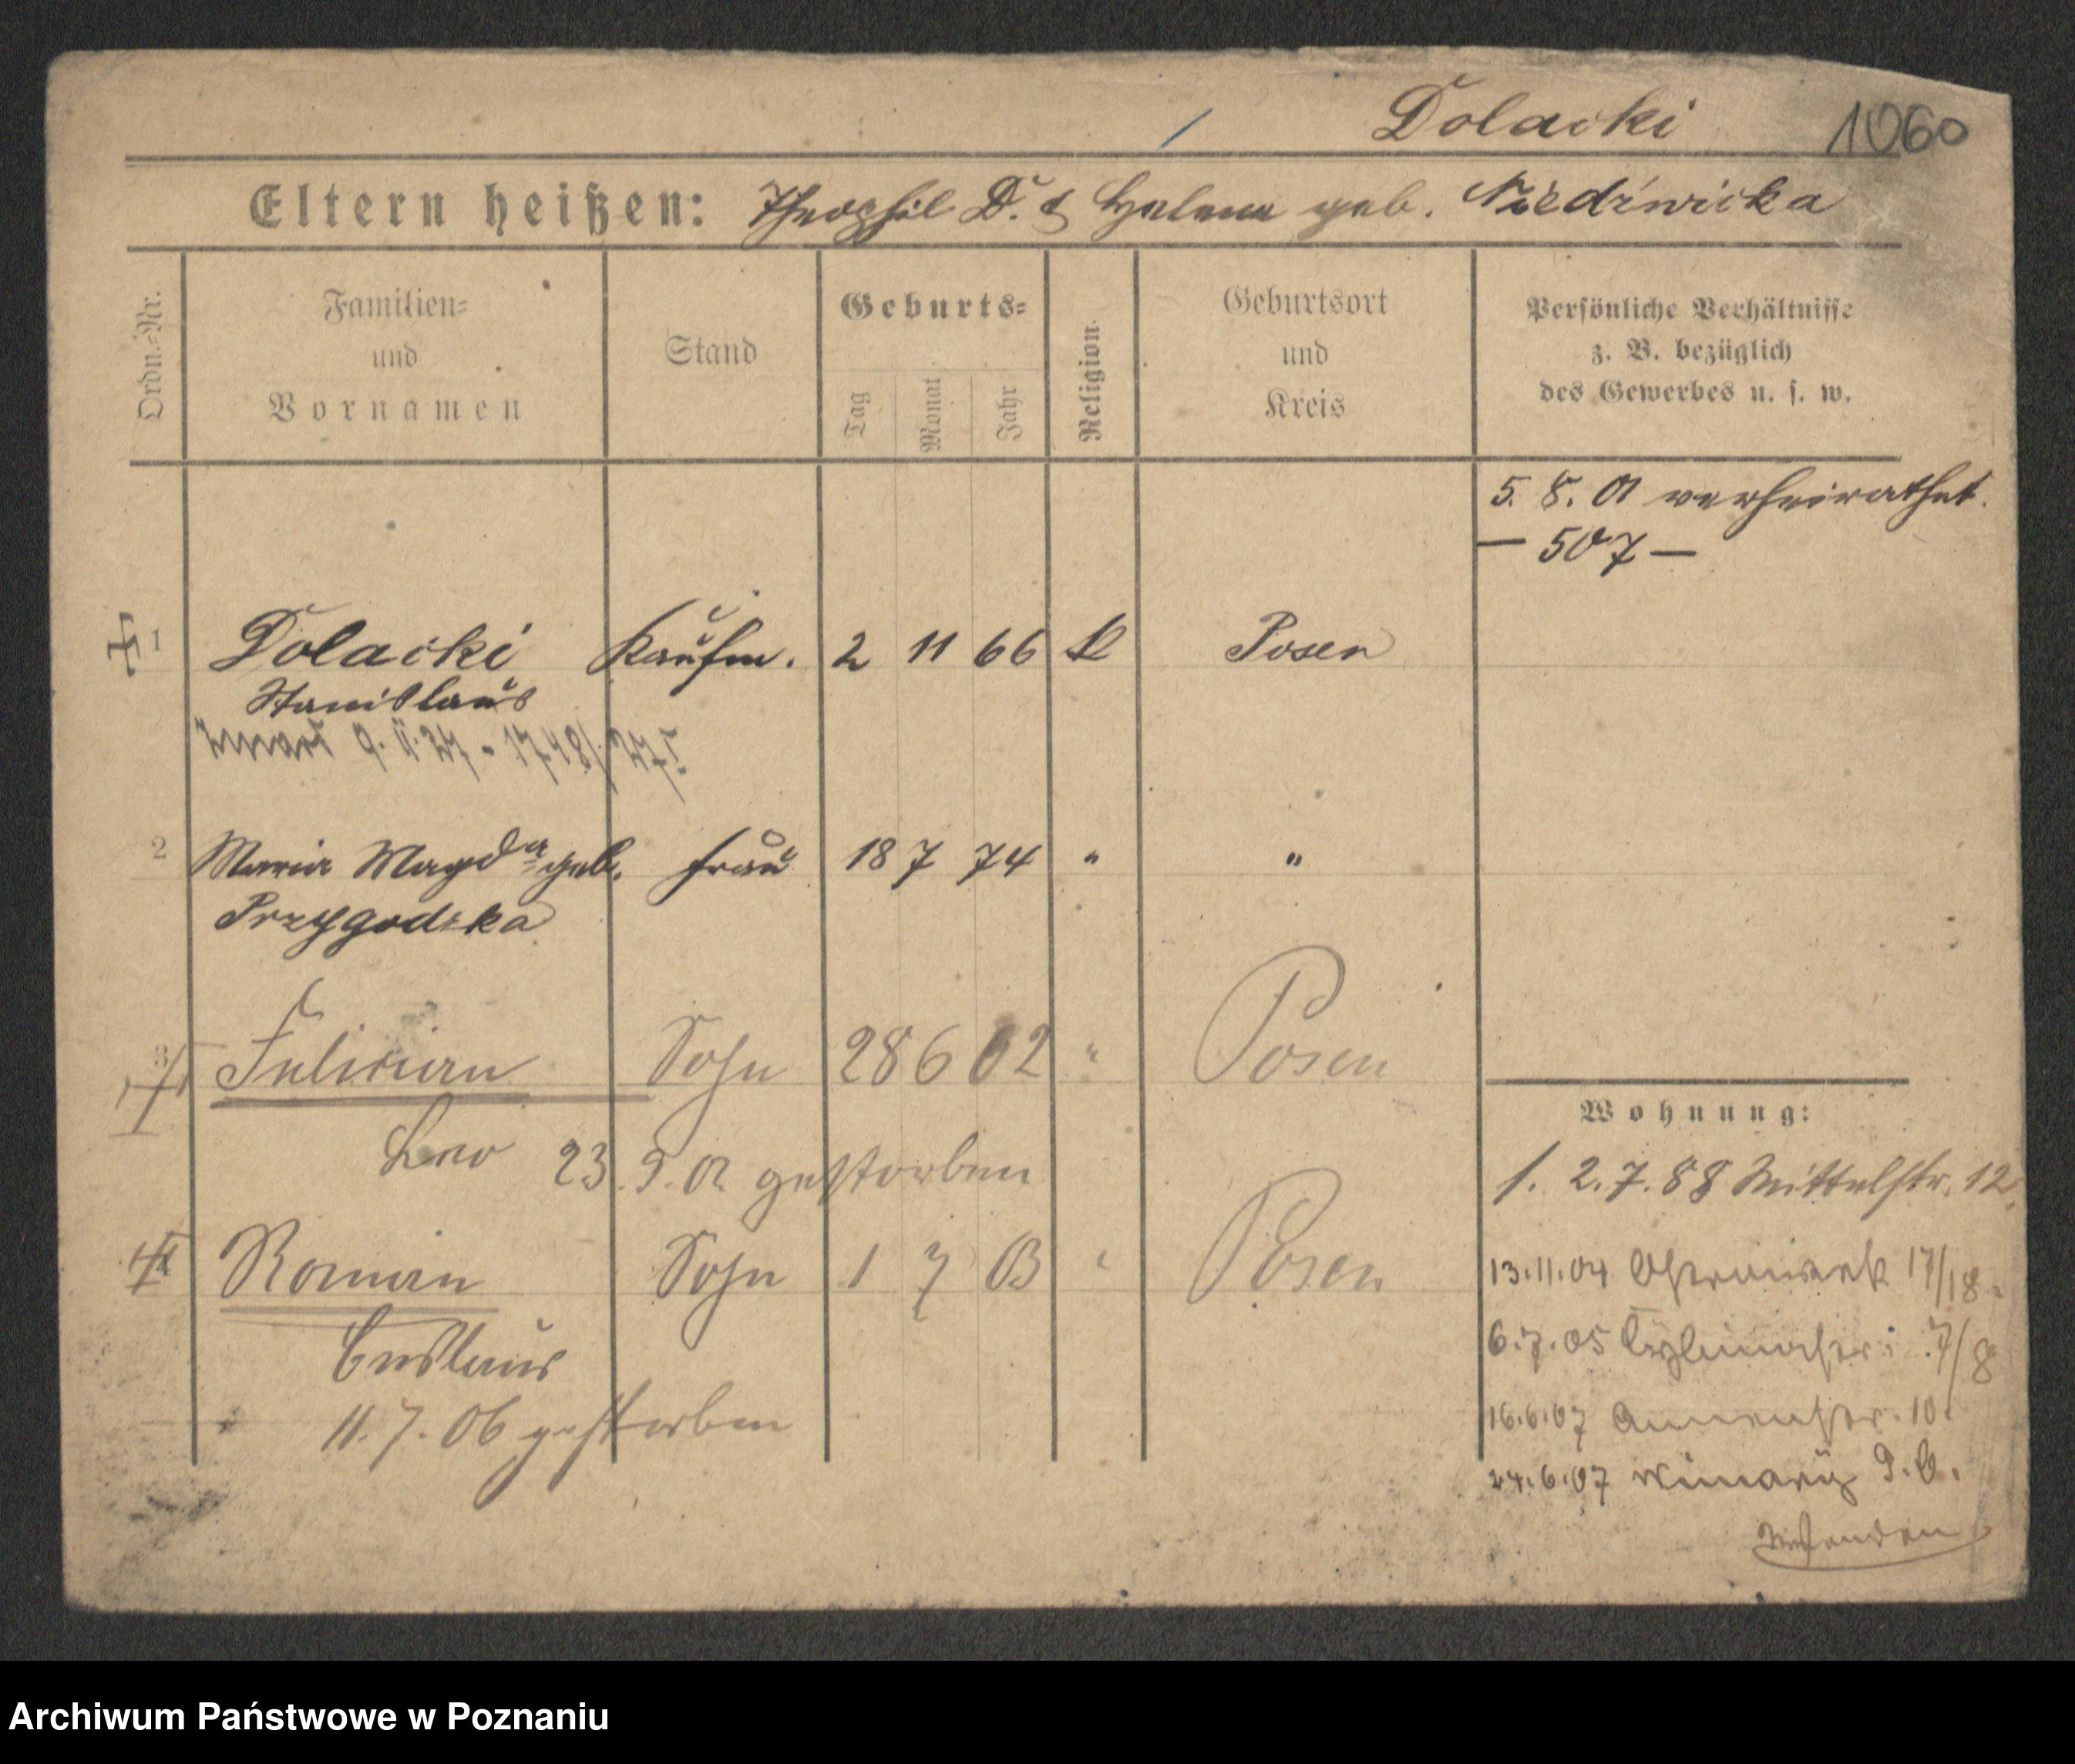 Dolacki 1060
Eltern heißen: Theophil D. & Helena geb. Niedźwicka
Ordn.-Nr.
Familien- und Vornamen
Stand
Geburts-
Tag Monat Jahr
Religion.
Geburtsort und Kreis
Persönliche Verhältnisse z. B. bezüglich des Gewerbes u. s. w.
5. 8. 01 verheirathet.
— 507 —
1 Dolacki Kaufm. 2 11 66 K Posen
Stanislaus
zmarł 9. 11. 27 - 1748/27 r
2 Maria Magda geb. Frau 18 7 74 " "
Przygodzka
3 Felician Sohn 28 6 02 " Posen
Leo 23. 9. 02 gestorben
Roman Sohn 1 7 03 " Posen
Ceslaus
11. 7. 06 gestorben
Wohnung:
1. 2. 7. 88 Mittelstr. 12.
13.11.04 17/18.
6.7.05 7/8
16.6.07 Annenstr. 10.
24.6.07 Winiary
Wenden
Archiwum Państwowe w Poznaniu